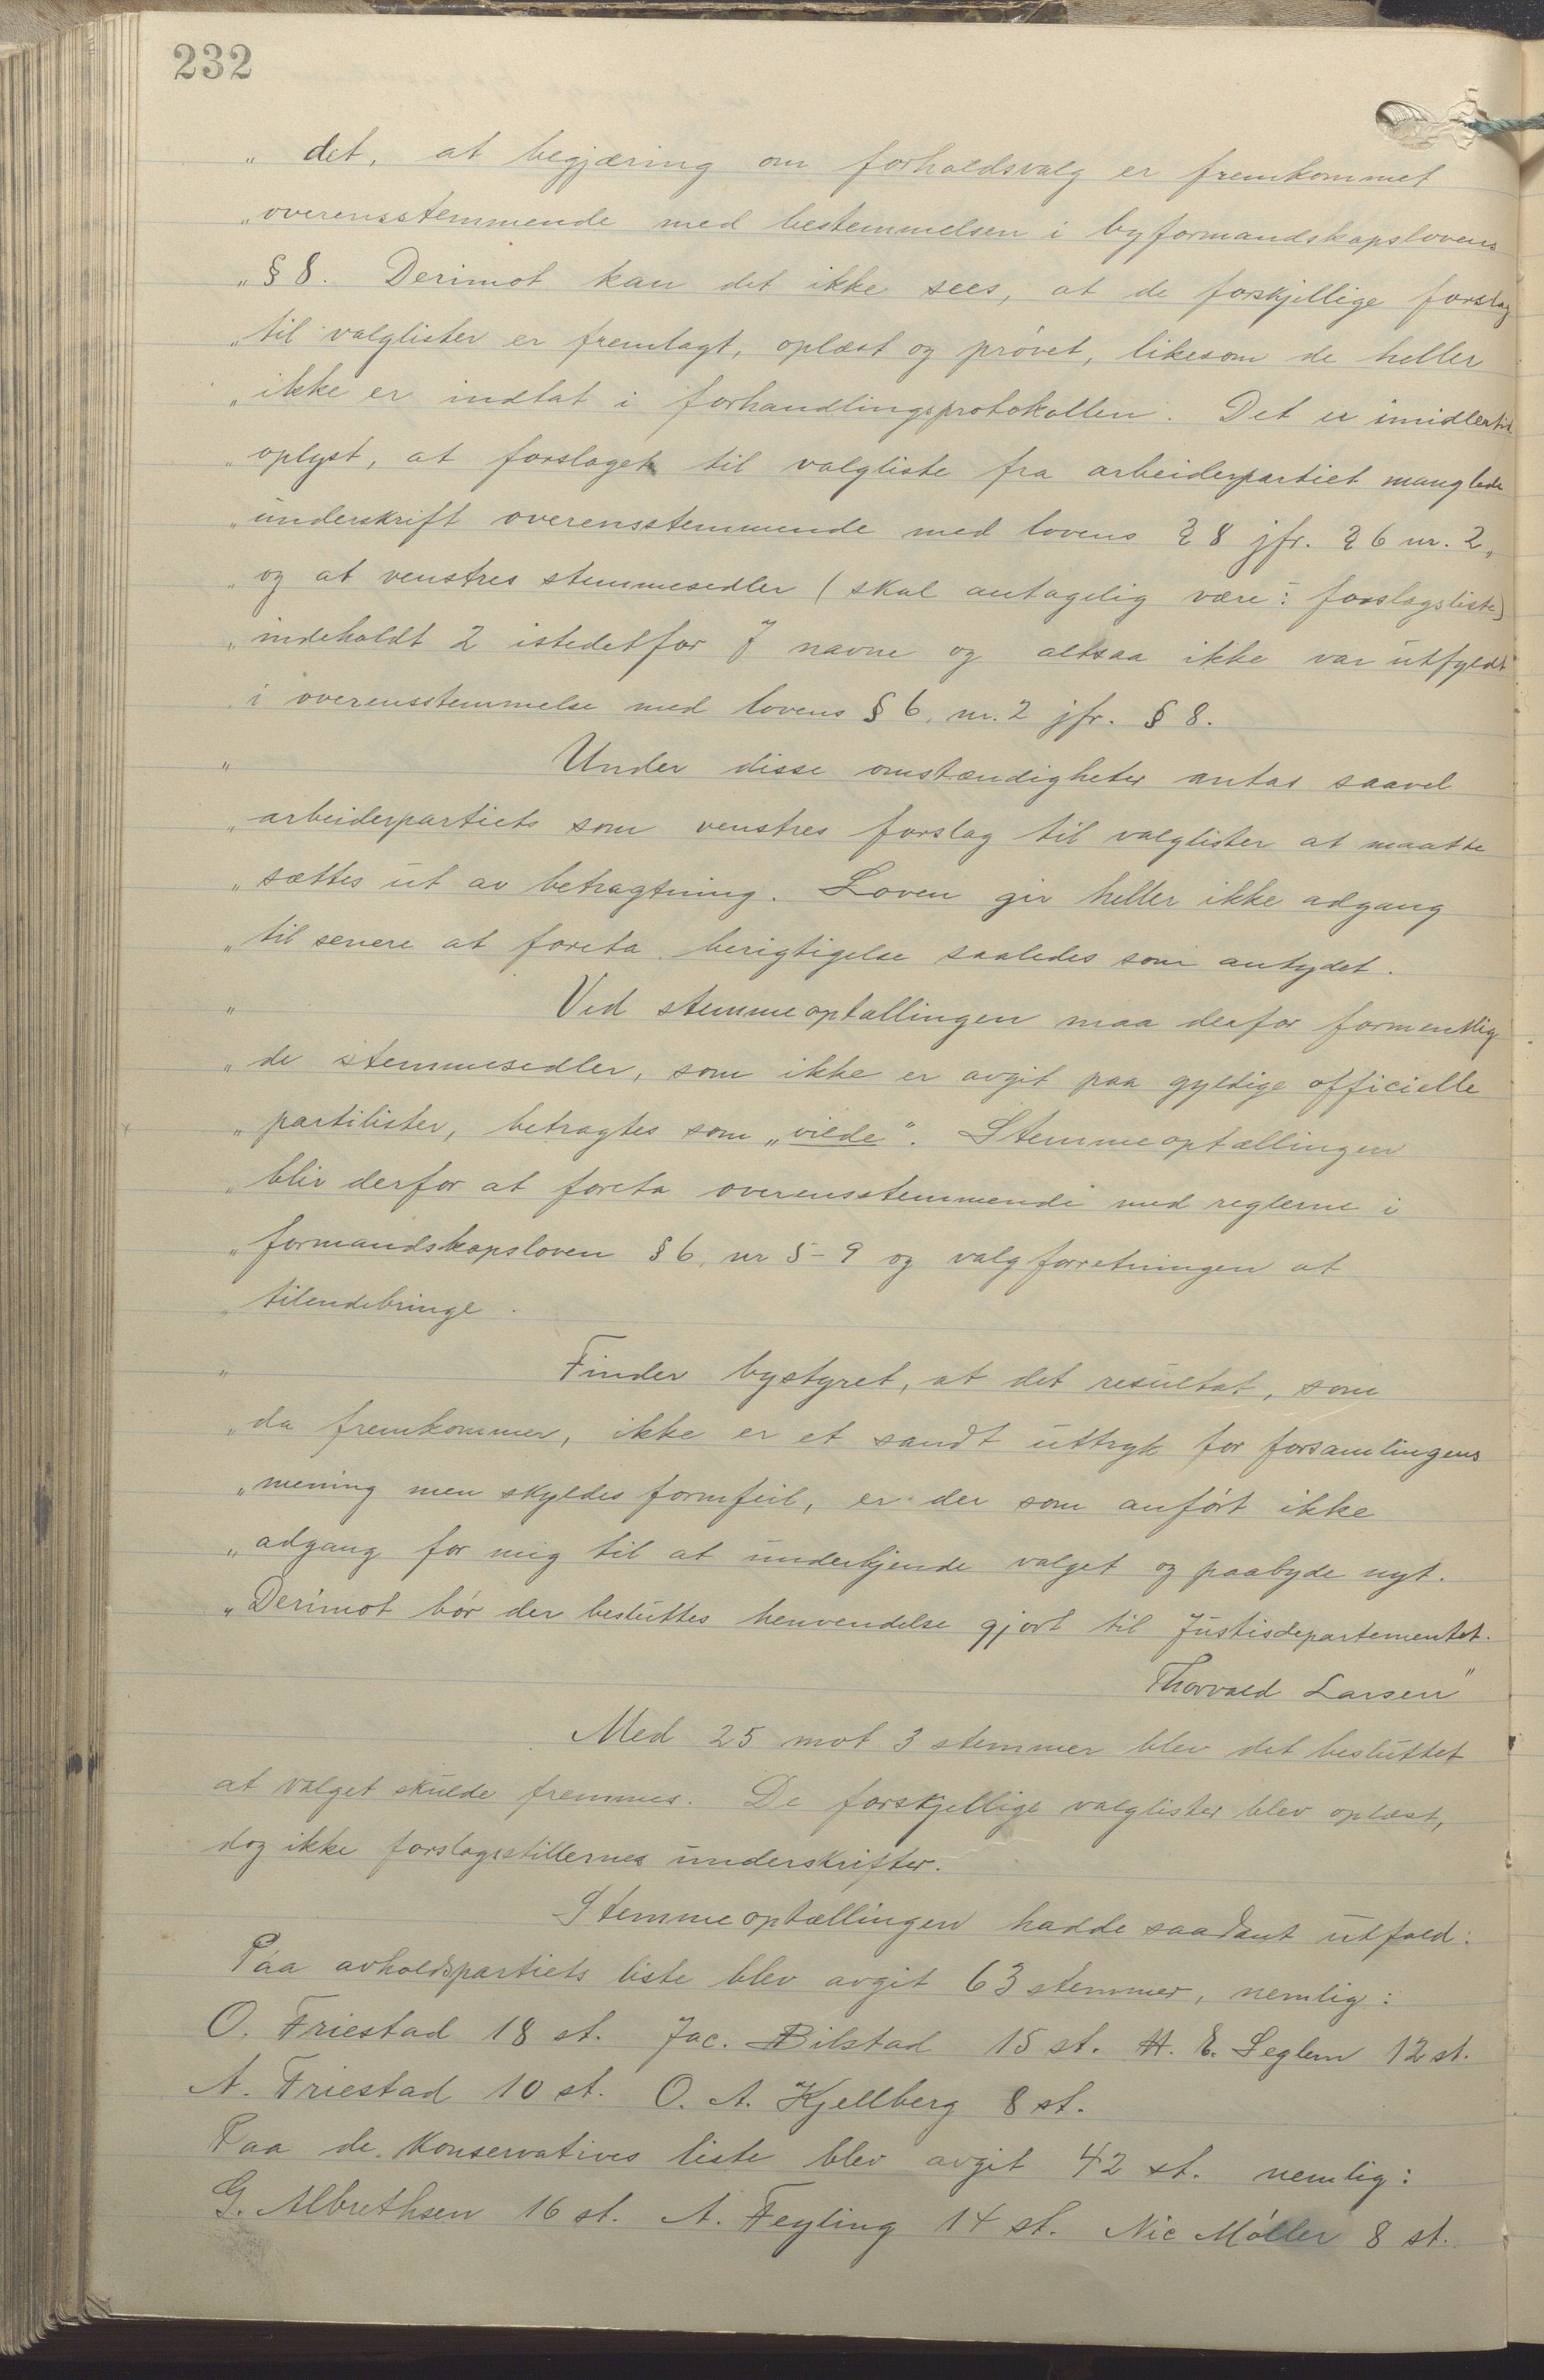 232
„ det, at begjæring om forholdsvalg er fremkommet
„ overensstemmende med bestemmelsen i byformandskapslovens
„ § 8. Derimot kan det ikke sees, at de forskjellige forslag
„ til valglister er fremlagt, oplæst og prøvet, likesom de heller
„ ikke er indtat i forhandlingsprotokollen. Det er imidlertid
„ oplyst, at forslaget til valgliste fra arbeiderpartiet manglede
„ underskrift overensstemmende med lovens § 8 jfr. § 6 nr. 2,
„ og at venstres stemmesedler (skal antagelig være: forslagsliste)
„ indeholdt 2 istedetfor 7 navne og altsaa ikke var utfyldt
i overensstemmelse med lovens § 6, nr. 2 jfr. § 8.
„ Under disse omstændigheter antas saavel
„ arbeiderpartiets som venstres forslag til valglister at maatte
„ sættes ut av betragtning. Loven gir heller ikke adgang
„ til senere at foreta berigtigelse saaledes som antydet.
„ Ved stemmeoptællingen maa derfor formentlig
„ de stemmesedler, som ikke er avgit paa gyldige officielle
„ partilister, betragtes som „vilde“. Stemmeoptællingen
„ blir derfor at foreta overensstemmende med reglerne i
„ formandskapsloven § 6, nr 5-9 og valgforretningen at
„ tilendebringe.
„ Finder bystyret, at det resultat, som
„ da fremkommer, ikke er et sandt uttryk for forsamlingens
„ mening men skyldes formfeil, er der som anført ikke
„ adgang for mig til at underkjende valget og paabyde nyt.
„ Derimot bør der besluttes henvendelse gjort til Justisdepartementet.
Thorvald Larsen"
Med 25 mot 3 stemmer blev det besluttet
at valget skulde fremmes. De forskjellige valglister blev oplæst,
dog ikke forslagsstillernes underskrifter.
Stemmeoptællingen hadde saadant utfald:
Paa avholdspartiets liste blev avgit 63 stemmer, nemlig:
O. Friestad 18 st. Jac. Bilstad 15 st. H. E. Seglem 12 st.
A. Friestad 10 st. O. A. Kjellberg 8 st.
Paa de konservatives liste blev avgit 42 st. nemlig:
G. Albrethsen 16 st. A. Feyling 14 st. Nic Møller 8 st.